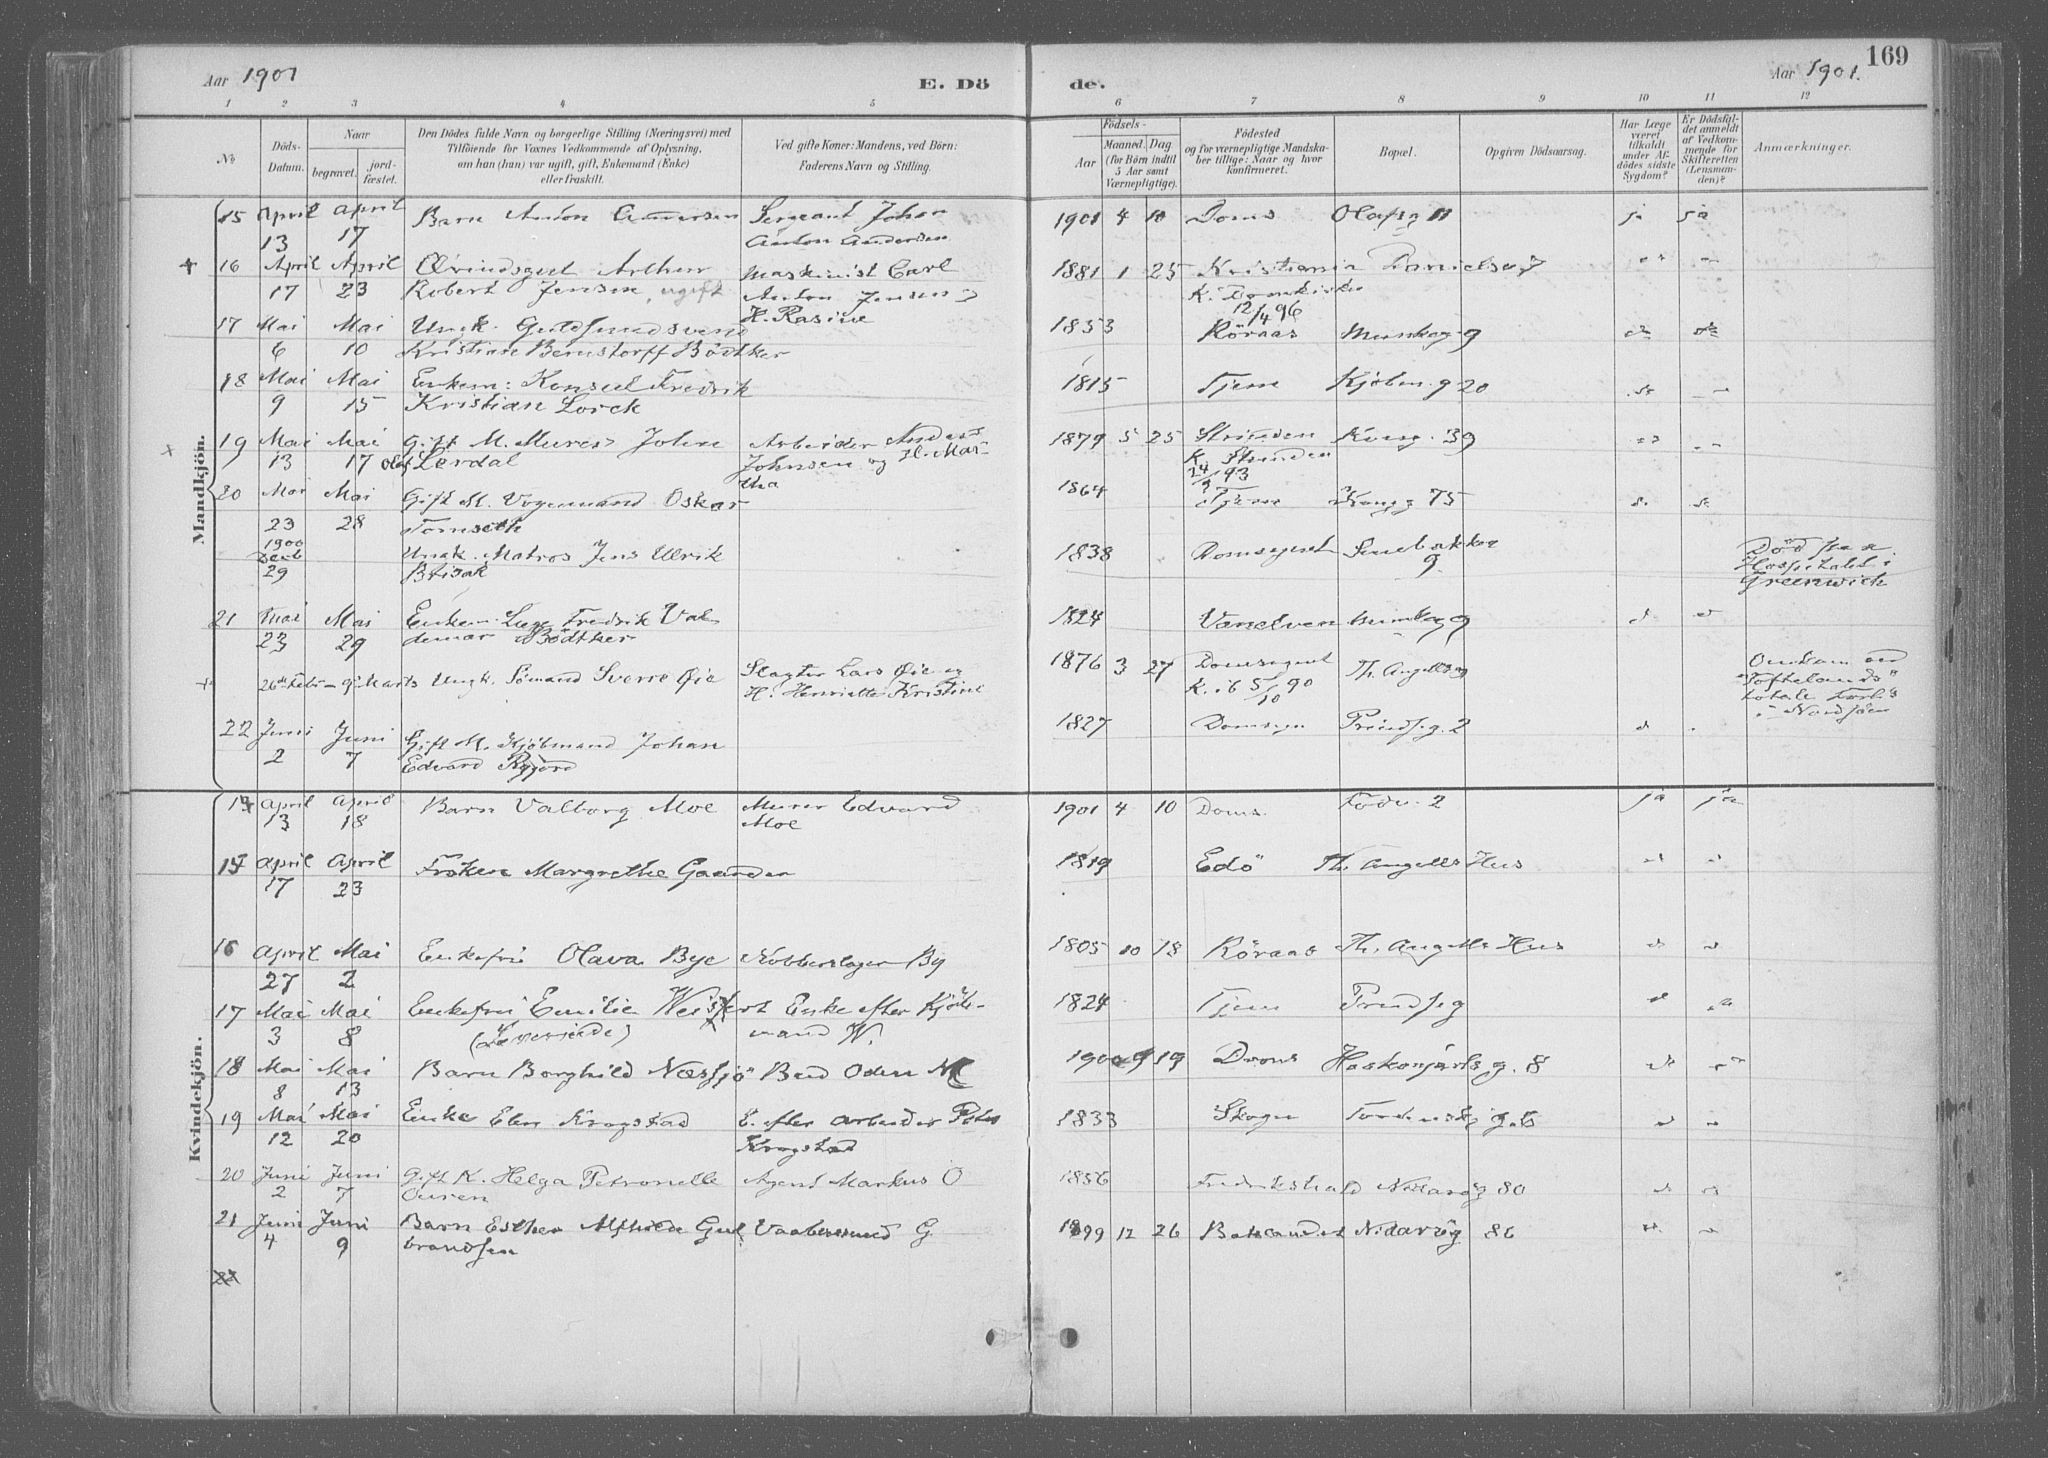 Aar 1901
E. Dö
de.
Aar 1901.
169
1 2 3 4 5 6 7 8 9 10 11 12
No
Döds-
Datum.
Naar
begravet.
jord-
fæstet.
Den Dödes fulde Navn og borgerlige Stilling (Næringsvei) med
Tilföiende for Voxnes Vedkommende af Oplysning,
om han (hun) var ugift, gift, Enkemand (Enke)
eller fraskilt.
Ved gifte Koner: Mandens, ved Börn:
Faderens Navn og Stilling.
Födsels-
Aar
Maaned. Dag.
(for Börn indtil
5 Aar samt
Værnepligtige).
Födested
og for værnepligtige Mandska-
ber tillige: Naar og hvor
konfirmeret.
Bopæl.
Opgiven Dödsaarsag.
Har Læge
været
tilkaldt
under Af-
dödes sidste
Sygdom?
Er Dödsfal-
det anmeldt
af Vedkom-
mende for
Skifteretten
(Lensman-
den)?
Anmærkninger.
Mandkjön.
15 April 13 April 17 Barn Anton Andersen Sergeant Johan
Anton Andersen
1901 4 10 Doms Olafsg 11 ja ja
16 April 17 April 23 Öivindsgut Arthur
Robert Jensen, ugift
Maskinist Carl
Anton Jensen &
H. Rasine
1881 1 25 Kristiania
K. Domkirke
12/4 96
17 Mai 6 Mai 10 Ungk. Guldsmedsvend
Kristian Bernstorff Bödtker
1853 Röraas Munkeg 9
18 Mai 9 Mai 15 Enkem: Konsul Fredrik
Kristian Lorck
1815 Tjem Kjöbm. g 20
19 Mai 13 Mai 17 Gift M. Murer Johan
Olaf Lerdal
Arbeider Anders
Johnsen og H. Mar-
tha
1879 5 25 Strinden
K. Strinden
24/9 93
Kong. 39
20 Mai 23 Mai 28 Gift M. Vognmand Oskar
Tomseth
1864 Tjem Kongg 75
1900
Decb
29
Ungk. Matros Jens Ulrik
Brisak
1838 Domsognet
9
Död paa
Hospitalet i
Greenwich
21 Mai 23 Mai 29 Enkem. Læge Fredrik Val
demar Bödtker
1824 Vanelven Munkeg 9
26de Febr - 9de Marts Ungk. Sömand Sverre Øie Slagter Lars Øie og
H. Henriette Kristine
1876 3 27 Domsognet
K. ib 5/10 90
Th. Angellsg
Omkom ved
"Toftelands"
totale Forlis
i Nordsjöen
22 Juni 2 Juni 7 Gift M. Kjöbmand Johan
Edvard Rygjord
1827 Domsogn Prindsg. 2
Kvindekjön.
14 April 13 April 18 Barn Valborg Moe Murer Edvard
Moe
1901 4 10 Doms. 2 ja ja
15 April 17 April 23 Fröken Margrethe Gaarder
1819 Edö Th. Angells Hus
16 April 27 Mai 2 Enkefru Olava Bye Kobberslager By
1805 10 18 Röraas Th. Angells Hus
17 Mai 3 Mai 8 Enkefru Emilie Weissert Enke efter Kjöb-
mand W.
1824 Tjem Prindsg
18 Mai 8 Mai 13 Barn Borghild Næssjö Bud Oden N
1900 9 19 Doms Haakonjarls g. 8
19 Mai 12 Mai 20 Enke Elen Krogstad E. efter Arbeider Peter
Krogstad
1833 Skogn
20 Juni 2 Juni 7 Gift K. Helga Petronelle
Ouren
Agent Markus O
1856 Fredrikshald Nidarög 80
21 Juni 4 Juni 9 Barn Esther Alfhilde Gul
brandsen
Vaabensmed G
1899 12 26 Bakandet Nidarög 86
22